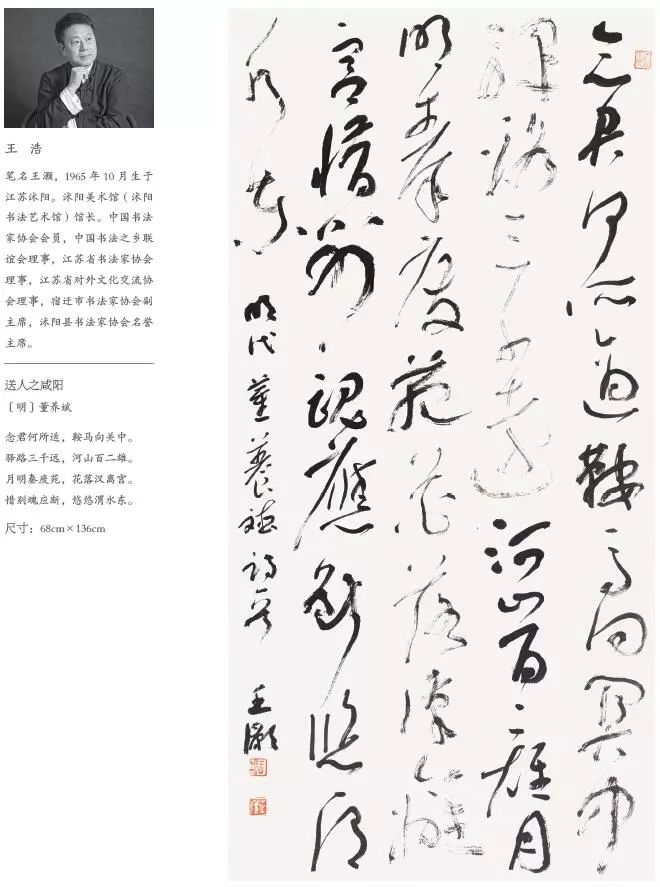 王 浩
笔名王灏，1965 年 10 月生于
江苏沭阳。沭阳美术馆（沭阳
书法艺术馆）馆长。中国书法
家协会会员，中国书法之乡联
谊会理事，江苏省书法家协会
理事，江苏省对外文化交流协
会理事，宿迁市书法家协会副
主席，沭阳县书法家协会名誉
主席。
送人之咸阳
〔明〕董养斌
念君何所适，鞍马向关中。
驿路三千远，河山百二雄。
月明秦废苑，花落汉离宫。
惜别魂应断，悠悠渭水东。
尺寸：68cm×136cm
念君何所适鞍马向关中
驿路三千远河山百二雄月
明秦废苑花落汉离
宫惜别魂应断悠悠渭
水东
明代董养斌诗一首 王灏